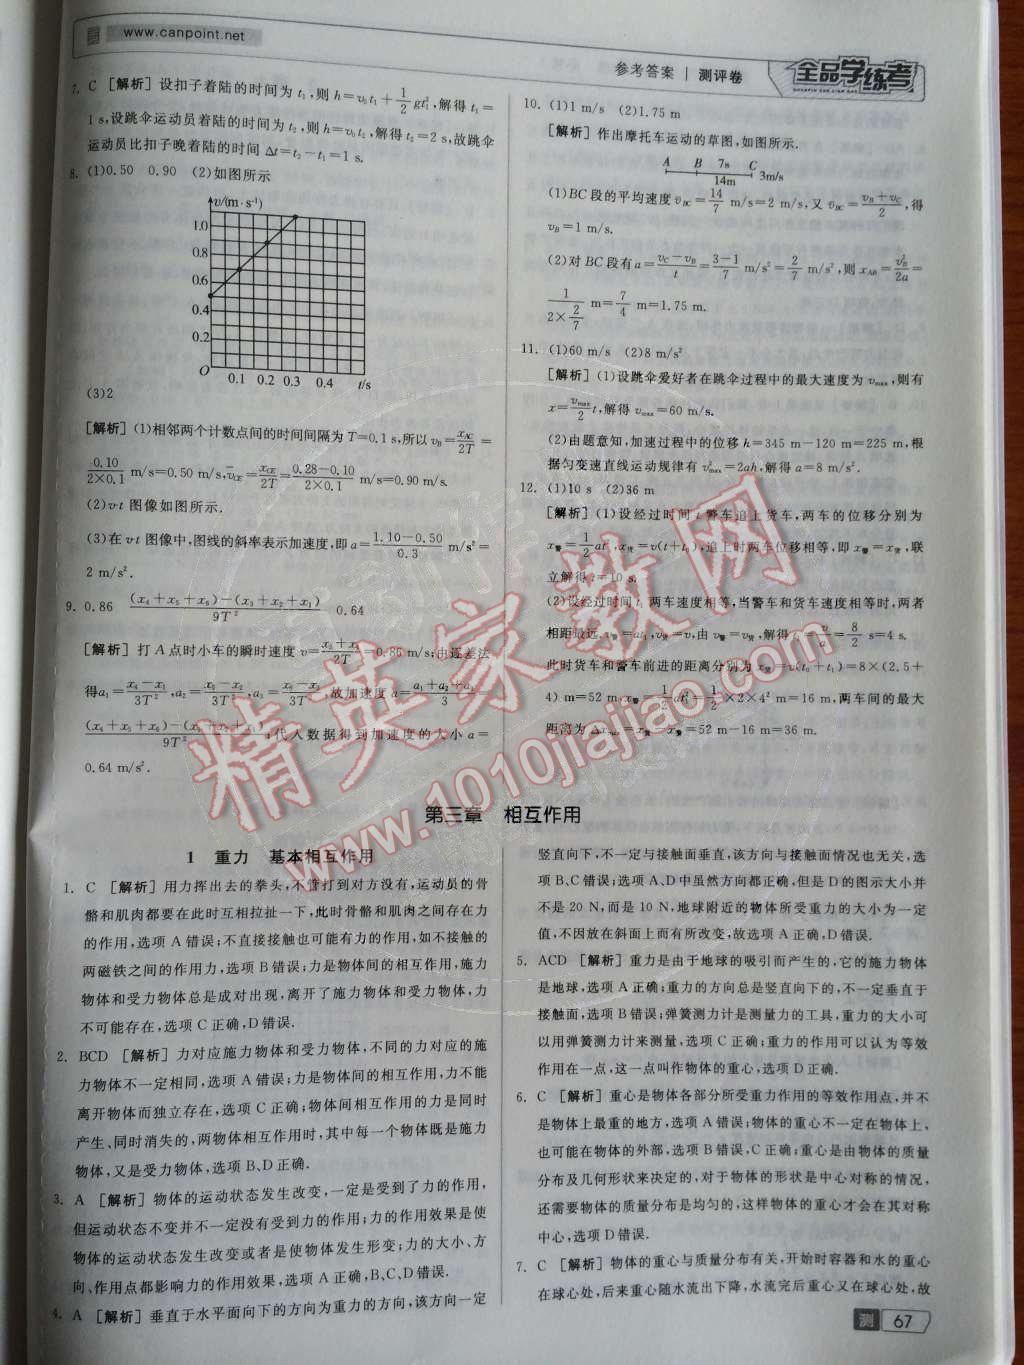 www.canpoint.net
参考答案 | 测评卷
全品学练考
7. C [解析] 设扣子着陆的时间为 t₁,则 h=v₀t₁+1/2gt₁²,解得 t₁=
1 s,设跳伞运动员着陆的时间为 t₂,则 h=v₀t₂,解得 t₂=2 s,故跳伞
运动员比扣子晚着陆的时间 Δt=t₂-t₁=1 s.
8. (1)0.50 0.90 (2)如图所示
v/(m·s⁻¹)
1.0
0.8
0.6
0.4
0.2
O 0.1 0.2 0.3 0.4 t/s
(3)2
[解析] (1)相邻两个计数点间的时间间隔为 T=0.1 s,所以 v_B=x_AC/2T=
0.10/(2×0.1) m/s=0.50 m/s,v_CE=x_CE/2T=(0.28-0.10)/(2×0.1) m/s=0.90 m/s.
(2)v-t 图像如图所示.
(3)在 v-t 图像中,图线的斜率表示加速度,即 a=(1.10-0.50)/0.3 m/s²=
2 m/s².
9. 0.86 [(x₄+x₅+x₆)-(x₃+x₂+x₁)]/9T² 0.64
[解析] 打 A 点时小车的瞬时速度 v=(x₃+x₄)/2T=0.86 m/s;由逐差法
得a₁=(x₄-x₁)/3T²,a₂=(x₅-x₂)/3T²,a₃=(x₆-x₃)/3T²,故加速度 a=(a₁+a₂+a₃)/3=
[(x₄+x₅+x₆)-(x₃+x₂+x₁)]/9T²,代入数据得到加速度的大小 a=
0.64 m/s².
10. (1)1 m/s (2)1.75 m
[解析] 作出摩托车运动的草图,如图所示.
A B 7s C
14m 3m/s
(1)BC 段的平均速度 v_BC=14/7 m/s=2 m/s,又 v_BC=(v_B+v_C)/2,得
v_B=1 m/s.
(2)对 BC 段有 a=(v_C-v_B)/t=(3-1)/7 m/s²=2/7 m/s²,则 x_AB=v_B²/2a=
1/(2×2/7) m=7/4 m=1.75 m.
11. (1)60 m/s (2)8 m/s²
[解析] (1)设跳伞爱好者在跳伞过程中的最大速度为 v_max,则有
x=v_max/2 t,解得 v_max=60 m/s.
(2)由题意知,加速过程中的位移 h=345 m-120 m=225 m,根
据匀变速直线运动规律有 v²_max=2ah,解得 a=8 m/s².
12. (1)10 s (2)36 m
[解析] (1)设经过时间 t 警车追上货车,两车的位移分别为
x警=1/2at²,x货=v(t+t₀),追上时两车位移相等,即 x警=x货,联
立解得 t=10 s.
(2)设经过时间 t₁ 两车速度相等,当警车和货车速度相等时,两者
相距最远,v警=at₁,v货=v,由 v警=v货,解得 t₁=v/a=8/2 s=4 s.
此时货车和警车前进的距离分别为 x货=v(t₀+t₁)=8×(2.5+
4) m=52 m,x警=1/2at₁²=1/2×2×4² m=16 m,两车间的最大
距离为 Δx_max=x货-x警=52 m-16 m=36 m.
第三章 相互作用
1 重力 基本相互作用
1. C [解析] 用力挥出去的拳头,不管打到对方没有,运动员的骨
骼和肌肉都要在此时互相拉扯一下,此时骨骼和肌肉之间存在力
的作用,选项 A 错误;不直接接触也可能有力的作用,如不接触的
两磁铁之间的作用力,选项 B 错误;力是物体间的相互作用,施力
物体和受力物体总是成对出现,离开了施力物体和受力物体,力
不可能存在,选项 C 正确,D 错误.
2. BCD [解析] 力对应施力物体和受力物体,不同的力对应的施
力物体不一定相同,选项 A 错误;力是物体间的相互作用,力不能
离开物体而独立存在,选项 C 正确;物体间相互作用的力是同时
产生、同时消失的,两物体相互作用时,其中每一个物体既是施力
物体,又是受力物体,选项 B、D 正确.
3. A [解析] 物体的运动状态发生改变,一定是受到了力的作用,
但运动状态不变并不一定没有受到力的作用;力的作用效果是使
物体的运动状态发生改变或者是使物体发生形变;力的大小、方
向、作用点都影响力的作用效果,选项 A 正确,B、C、D 错误.
4. A [解析] 垂直于水平面向下的方向为重力的方向,该方向一定
竖直向下,不一定与接触面垂直,该方向与接触面情况也无关,选
项 B、C 错误;选项 A、D 中虽然方向都正确,但是 D 的图示大小并
不是 20 N,而是 10 N,地球附近的物体所受重力的大小为一定
值,不因放在斜面上而有所改变,故选项 A 正确、D 错误.
5. ACD [解析] 重力是由于地球的吸引而产生的,它的施力物体
是地球,选项 A 正确;重力的方向总是竖直向下的,不一定垂直于
接触面,选项 B 错误;弹簧测力计是测量力的工具,重力的大小可
以用弹簧测力计来测量,选项 C 正确;重力的作用可以认为等效
作用在一点,这一点叫作物体的重心,选项 D 正确.
6. C [解析] 重心是物体各部分所受重力作用的等效作用点,并不
是物体上最重的地方,选项 A 错误;物体的重心不一定在物体上,
也可能在物体的外部,选项 B 错误,C 正确;重心是由物体的质量
分布及几何形状来决定的,对于物体的形状是中心对称的情况,
还需要物体的质量分布是均匀的,这样物体的重心才会在其对称
中心上,选项 D 错误.
7. C [解析] 物体的重心与质量分布有关,开始时容器和水的重心
在球心处,后来重心随水流出下降,水流完后重心又在球心处,故
测 67
精英家教网
www.1010jiajiao.com